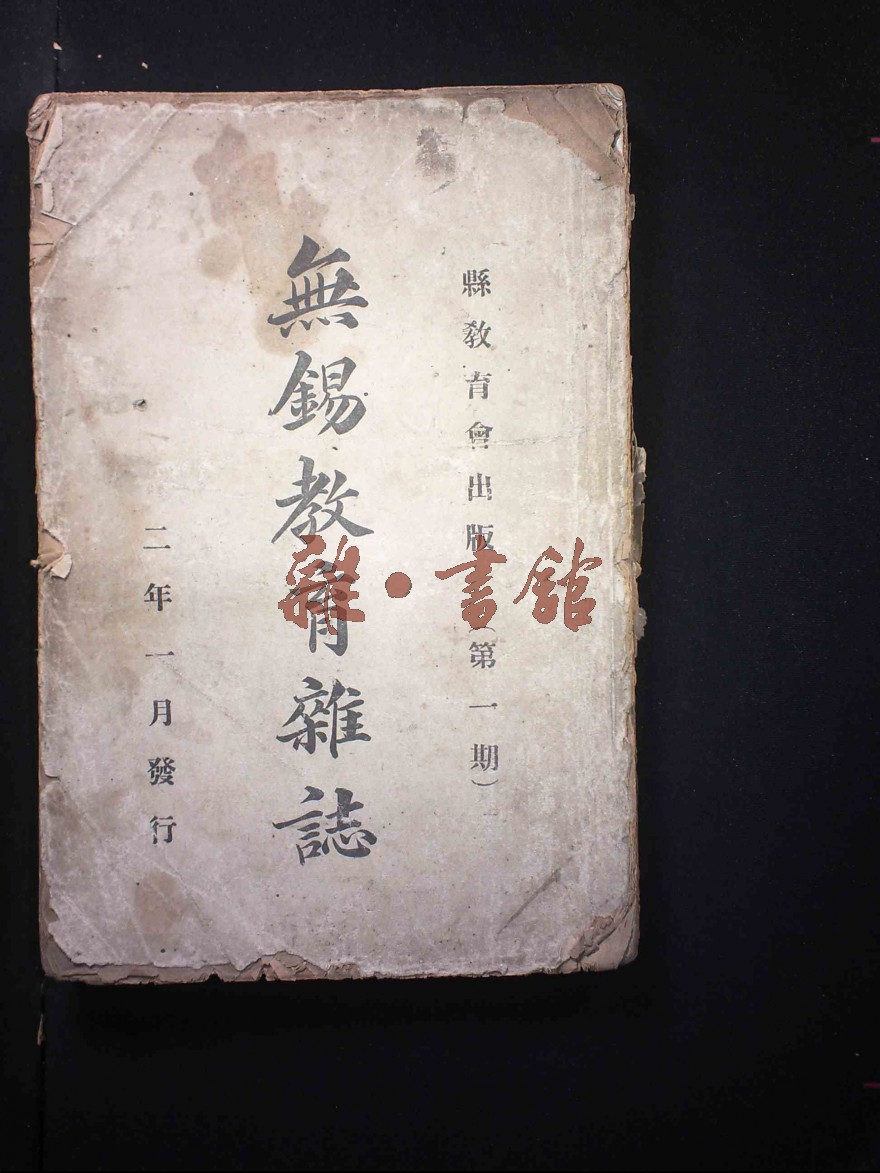 縣教育會出版（第一期）
無錫教育雜誌
二年一月發行
雜·書館